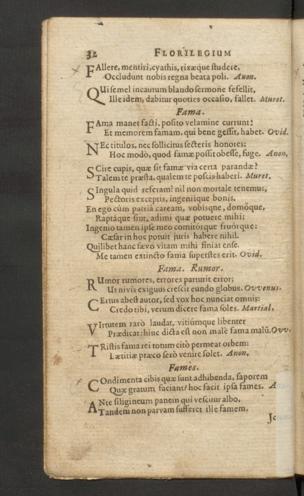 32 FLORILEGIUM
FAllere, mentiri, cyathis, rixæque studere,
Occludunt nobis regna beata poli. Anon.
QUi semel incautum blando sermone fefellit,
Ille idem, dabitur quoties occasio, fallet. Muret.
Fama.
FAma manet facti, posito velamine currunt:
Et memorem famam, qui bene gessit, habet. Ovid.
NEc titulos, nec sollicitus secteris honores:
Hoc modò, quod famæ possit obesse, fuge. Anon.
SCire cupis, quæ sit famæ via certa parandæ?
Talem te præsta, qualem te posci haberi. Muret.
SIngula quid referam? nil non mortale tenemus,
Pectoris exceptis, ingeniique bonis.
En ego cùm patriâ caream, vobisque, domóque,
Raptáque sint, adimi quæ potuere mihi:
Ingenio tamen ipse meo comitórque fruórque:
Cæsar in hoc potuit juris habere nihil.
Quilibet hanc sævo vitam mihi finiat ense,
Me tamen extincto fama superstes erit. Ovid.
Fama. Rumor.
RUmor rumores, errores parturit error;
Ut nivis exiguus crescit eundo globus. Ovvenus.
CErtus abest autor, sed vox hunc nunciat omnis:
Credo tibi, verum dicere fama soles. Martial.
VIrtutem rarò laudat, vitiúmque libenter
Prædicat: hinc dicta est non malè fama malū. Ovv.
TRistis fama rei totum citò permeat orbem:
Lætitiæ præco serò venire solet. Anon.
Fames.
COndimenta cibis quæ sunt adhibenda, saporem
Quæ gratum faciant? hoc facit ipsa fames. A
ANte siligineum panem qui vescitur albo,
Tandem non parvam sufferet ille famem.